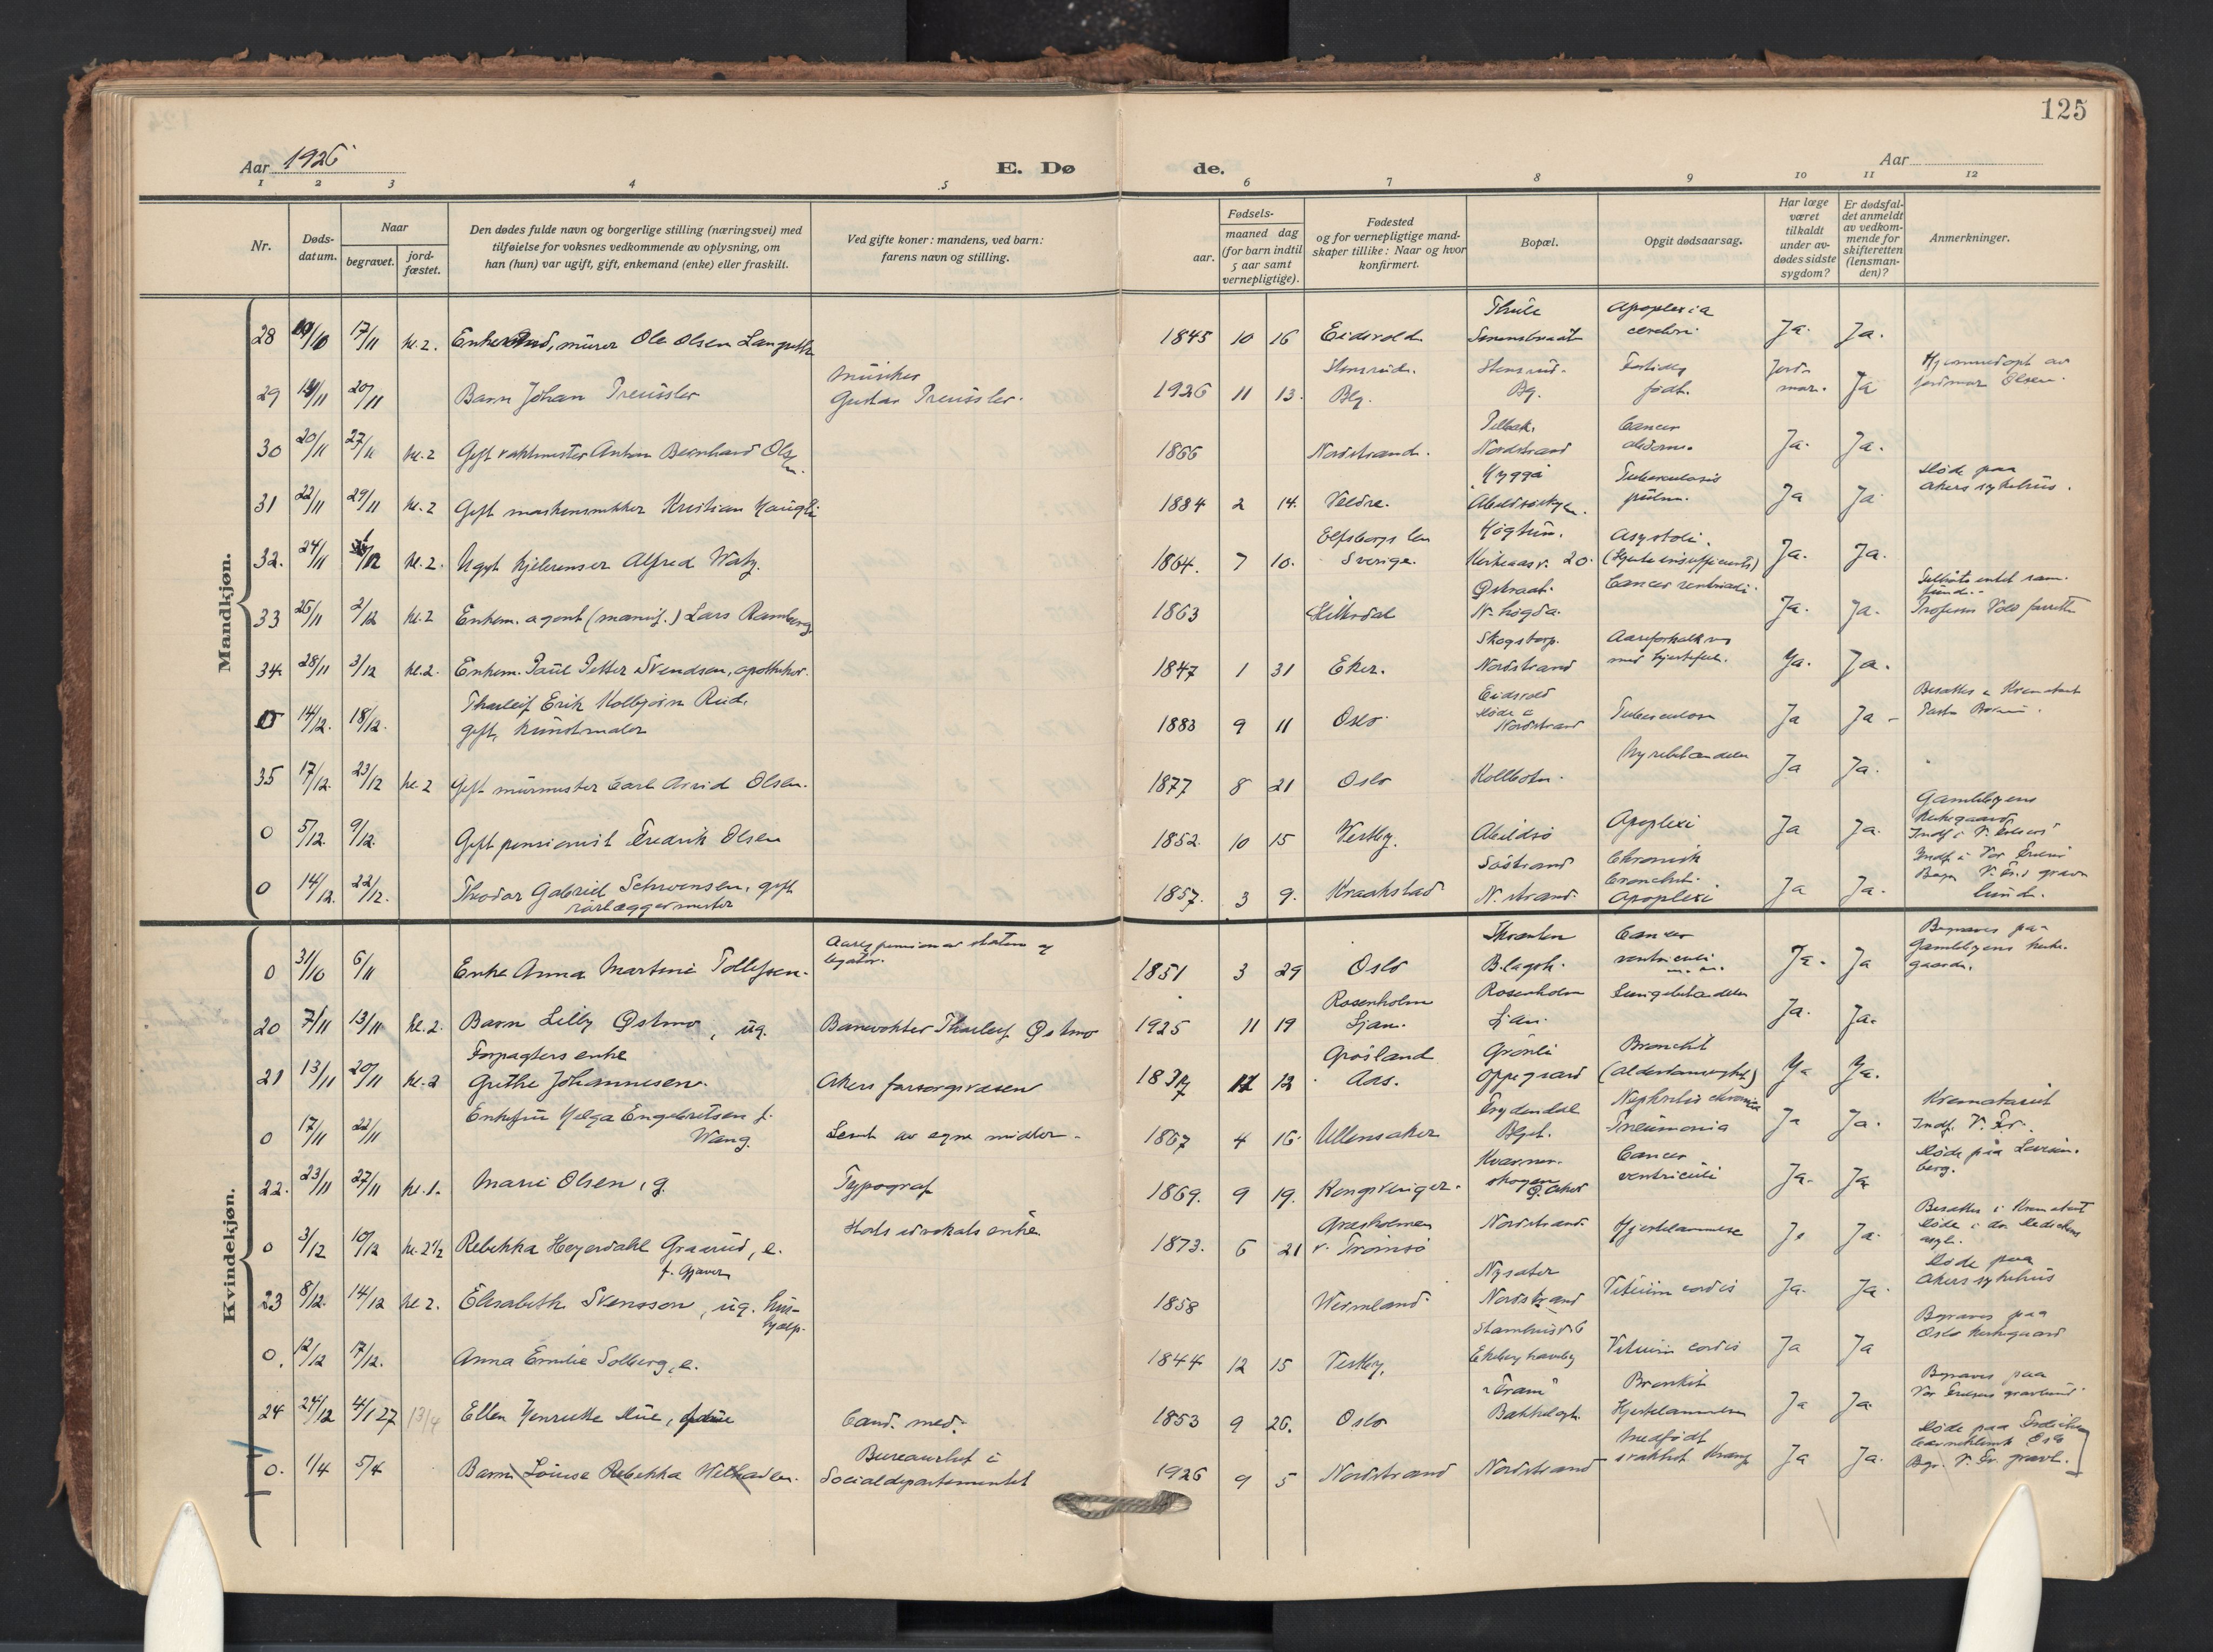 125
Aar 1926
E. Dø de.
Aar
1 2 3 4 5 6 7 8 9 10 11 12
Nr.
Døds-
datum.
Naar
begravet.
jord-
fæstet.
Den dødes fulde navn og borgerlige stilling (næringsvei) med
tilføielse for voksnes vedkommende av oplysning, om
han (hun) var ugift, gift, enkemand (enke) eller fraskilt.
Ved gifte koner: mandens, ved barn:
farens navn og stilling.
Fødsels-
aar.
maaned dag
(for barn indtil
5 aar samt
vernepligtige).
Fødested
og for vernepligtige mand-
skaper tillike: Naar og hvor
konfirmert.
Bopæl.
Opgit dødsaarsag.
Har læge
været
tilkaldt
under av-
dødes sidste
sygdom?
Er dødsfal-
det anmeldt
av vedkom-
mende for
skifteretten
(lensman-
den)?
Anmerkninger.
Mandkjøn.
28 19/10 17/11 kl. 2. murer Ole Olsen 1845 10 16 Eidsvold Thule Apoplexia cerebri Ja. Ja.
29 13/11 20/11 Barn Johan Preussler
musiker
Gustav Preussler. 1926 11 13. Stensrud. Blg. Stensrud. Bg. For tidlig født. Jord- mor. Ja Hjemmedøpt av jordmor Olsen.
30 20/11 27/11 kl. 2 Gift vaktmester Anton Bernhard Olsen. 1866 Nordstrand. Nordstrand Cancer Ja. Ja.
31 22/11 29/11 kl. 2 Gift maskinsnekker Kristian Haugli 1884 2 14. Veldre. Hygga Tuberculosis pulm. Ja Ja Døde paa Akers sykehus.
32. 24/11 1/12 kl. 2. Ugift hjelerenser Alfred Watz. 1864. 7 10. Elfsborgs len Sverige. Høgtun. Kirkeaasv. 20. Asystoli. (Hjerteinsufficients) Ja. Ja.
33 26/11 2/12 kl. 2 Enkem. agent (manuf.) Lars Ramberg. 1863 Hitterdal Østraat. N. høgda. Cancer ventriculi. Ja. Ja.
34 28/11 3/12 kl. 2. Enkem. Paul Petter Svendsen, apotheker. 1847 1 31 Eker. Skogstorp. Nordstrand Aareforkalkn. med hjertefeil. Ja. Ja.
0 14/12. 18/12. Tharleif Erik Kolbjørn Rud.
gift, kunstmaler 1883 9 11 Oslo. Eidsvold Døde i Nordstrand Tuberculose Ja Ja
35 17/12. 23/12 kl. 2 Gift murmester Carl Arvid Olsen. 1877 8 21 Oslo Kolbotn. Nyrebetændelse Ja Ja.
0 5/12. 9/12. Gift pensionist Fredrik Olsen 1852. 10 15 Vestby. Abildsø Apoplexi Ja Ja. Gamlebyens kirkegaard
0 14/12. 22/12. Theodor Gabriel Schwensen, gift
rørlæggermester 1857. 3 9. Kraakstad Søstrand N. strand. Chronisk bronchit. Apoplexi Ja Ja. lund.
Kvindekjøn.
0 31/10 6/11 Enke Anna Martine Tollefsen. 1851 3 29 Oslo B.lagsh. Cancer ventriculi m. m. Ja. Ja Begraves paa Gamlebyens kirke- gaard.
20 7/11 13/11 kl. 2. Barn Lilly Østmo, ug. Banevokter Tharleif Østmo 1925 11 19 Rosenholm Ljan. Rosenholm Ljan. Lungebetændelse Ja. Ja.
21 13/11 20/11 kl. 2
Forpagters enke
Grethe Johannesen. Akers forsorgsvæsen 12 Aas. Grønli Oppegaard Bronchit (Alderdomssvaghet) Ja Ja.
0 17/11 22/11 Enkefru Helga Engebretsen f.
Wang. Levet av egne midler. 1867 4 16. Ullensaker Frydendal Nephritis chronica Pneumonia Ja Ja. Krematoriet
22. 23/11 27/11 kl. 1. Marie Olsen, g. Typograf 1869. 9 19. Kongsvinger. Kværner- skogen Ø. Aker Cancer ventriculi Ja. Ja Døde paa Lovisen- berg.
0 3/12 10/12 kl. 2½ Rebekka Heyerdahl Graarud, e.
f. Gjæver 1873. 6 21 v. Tromsø Nordstrand. Hjertelammelse Ja Ja. Besattes i Krematoriet
23 8/12. 14/12 kl. 2. Elisabeth Svensson, ug. hus-
hjælp. 1858 Wermland. Nysæter Nordstrand Vitium cordis Ja. Ja. Døde paa Akers sykehus
0. 12/12 17/12. Anna Emilie Solberg, e. 1844 12 15 Vestby. Stamhusv. 6 Ekeberg haveby Vitium cordis Ja Ja Begraves paa Oslo kirkegaard
24 24/12 4/1 27 13/4 Ellen Henriette Due, Cand. med. 1853 9 26. Oslo "Fram" Bronkit Hjertelammelse Ja Ja. Begraves paa Vor Frelsers gravlund
0. 1/4 5/4 Barn Louise Rebekka
Socialdepartementet 1926 9 5 Nordstrand Nordstrand Medfødt svakhet Ja Ja.